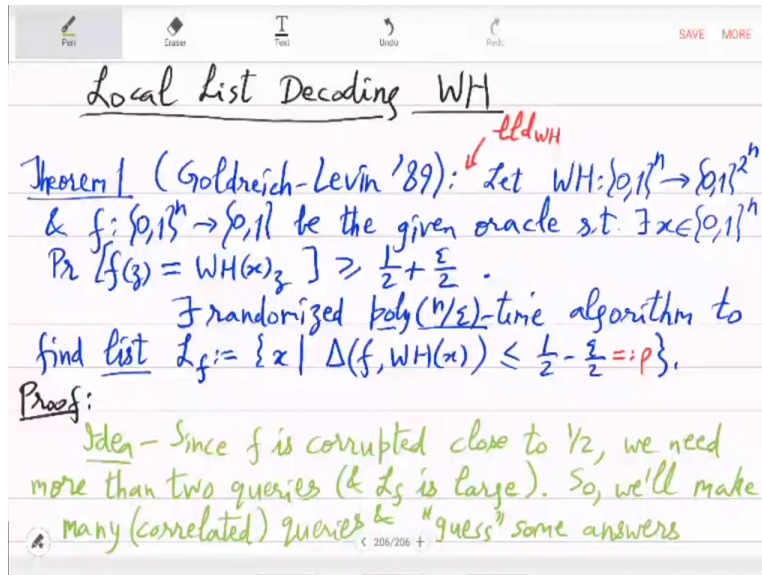 Pen Eraser Text Undo Redo SAVE MORE
Local List Decoding WH
lld_WH
Theorem 1 (Goldreich-Levin '89): Let WH: {0,1}^n → {0,1}^{2^n}
& f: {0,1}^n → {0,1} be the given oracle s.t. ∃x∈{0,1}^n
Pr [f(z) = WH(x)_z ] ≥ 1/2 + ε/2 .
∃ randomized poly(n/ε)-time algorithm to
find list L_f := {x | Δ(f, WH(x)) ≤ 1/2 - ε/2 =: ρ}.
Proof:
Idea - Since f is corrupted close to 1/2, we need
more than two queries (& L_f is large). So, we'll make
many (correlated) queries & "guess" some answers
< 206/206 +